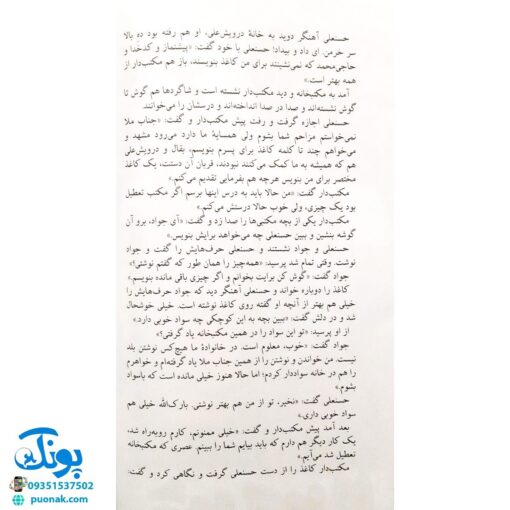 حسنعلی آهنگر دوید به خانهٔ درویش‌علی، او هم رفته بود ده بالا
سر خرمن. ای داد و بیداد! حسنعلی با خود گفت: «پیشنماز و کدخدا و
حاجی‌محمد که نمی‌نشینند برای من کاغذ بنویسند، باز هم مکتب‌دار از
همه بهتر است.»
آمد به مکتبخانه و دید مکتب‌دار نشسته است و شاگردها هم گوش تا
گوش نشسته‌اند و صدا در صدا انداخته‌اند و درسشان را می‌خوانند.
حسنعلی اجازه گرفت و رفت پیش مکتب‌دار و گفت: «جناب ملا
نمی‌خواستم مزاحم شما بشوم ولی همسایهٔ ما دارد می‌رود مشهد و
می‌خواهم چند تا کلمه کاغذ برای پسرم بنویسم، بقال و درویش‌علی
هم که همیشه به ما کمک می‌کنند نبودند، قربان آن دستت، یک کاغذ
مختصر برای من بنویس هرچه هم بفرمایی تقدیم می‌کنم.»
مکتب‌دار گفت: «من حالا باید به درس اینها برسم اگر مکتب تعطیل
بود یک چیزی، ولی خوب حالا درستش می‌کنم.»
مکتب‌دار یکی از بچه مکتبی‌ها را صدا زد و گفت: «آی جواد، برو آن
گوشه بنشین و ببین حسنعلی چه می‌خواهد برایش بنویس.»
حسنعلی و جواد نشستند و حسنعلی حرف‌هایش را گفت و جواد
نوشت. وقتی تمام شد پرسید: «همه‌چیز را همان طور که گفتم نوشتی؟»
جواد گفت: «گوش کن برایت بخوانم و اگر چیزی باقی مانده بنویسم.»
کاغذ را دوباره خواند و حسنعلی آهنگر دید که جواد حرف‌هایش را
خیلی هم بهتر از آنچه او گفته روی کاغذ نوشته است. خیلی خوشحال
شد و در دلش گفت: «ببین بچه به این کوچکی چه سواد خوبی دارد.»
از او پرسید: «تو این سواد را در همین مکتبخانه یاد گرفتی؟»
جواد گفت: «خوب، معلوم است. در خانوادهٔ ما هیچ‌کس نوشتن بلد
نیست. من خواندن و نوشتن را از همین جناب ملا یاد گرفته‌ام و خواهرم
را هم در خانه سواددار کردم؛ اما حالا هنوز خیلی مانده است که باسواد
بشوم.»
حسنعلی گفت: «نخیر، تو از من هم بهتر نوشتی. بارک‌الله خیلی هم
سواد خوبی داری.»
بعد آمد پیش مکتب‌دار و گفت: «خیلی ممنونم، کارم روبه‌راه شد،
یک کار دیگر هم دارم که باید بیایم شما را ببینم. عصری که مکتبخانه
تعطیل شد می‌آیم.»
مکتب‌دار کاغذ را از دست حسنعلی گرفت و نگاهی کرد و گفت:
پونک
09351537502
puonak.com